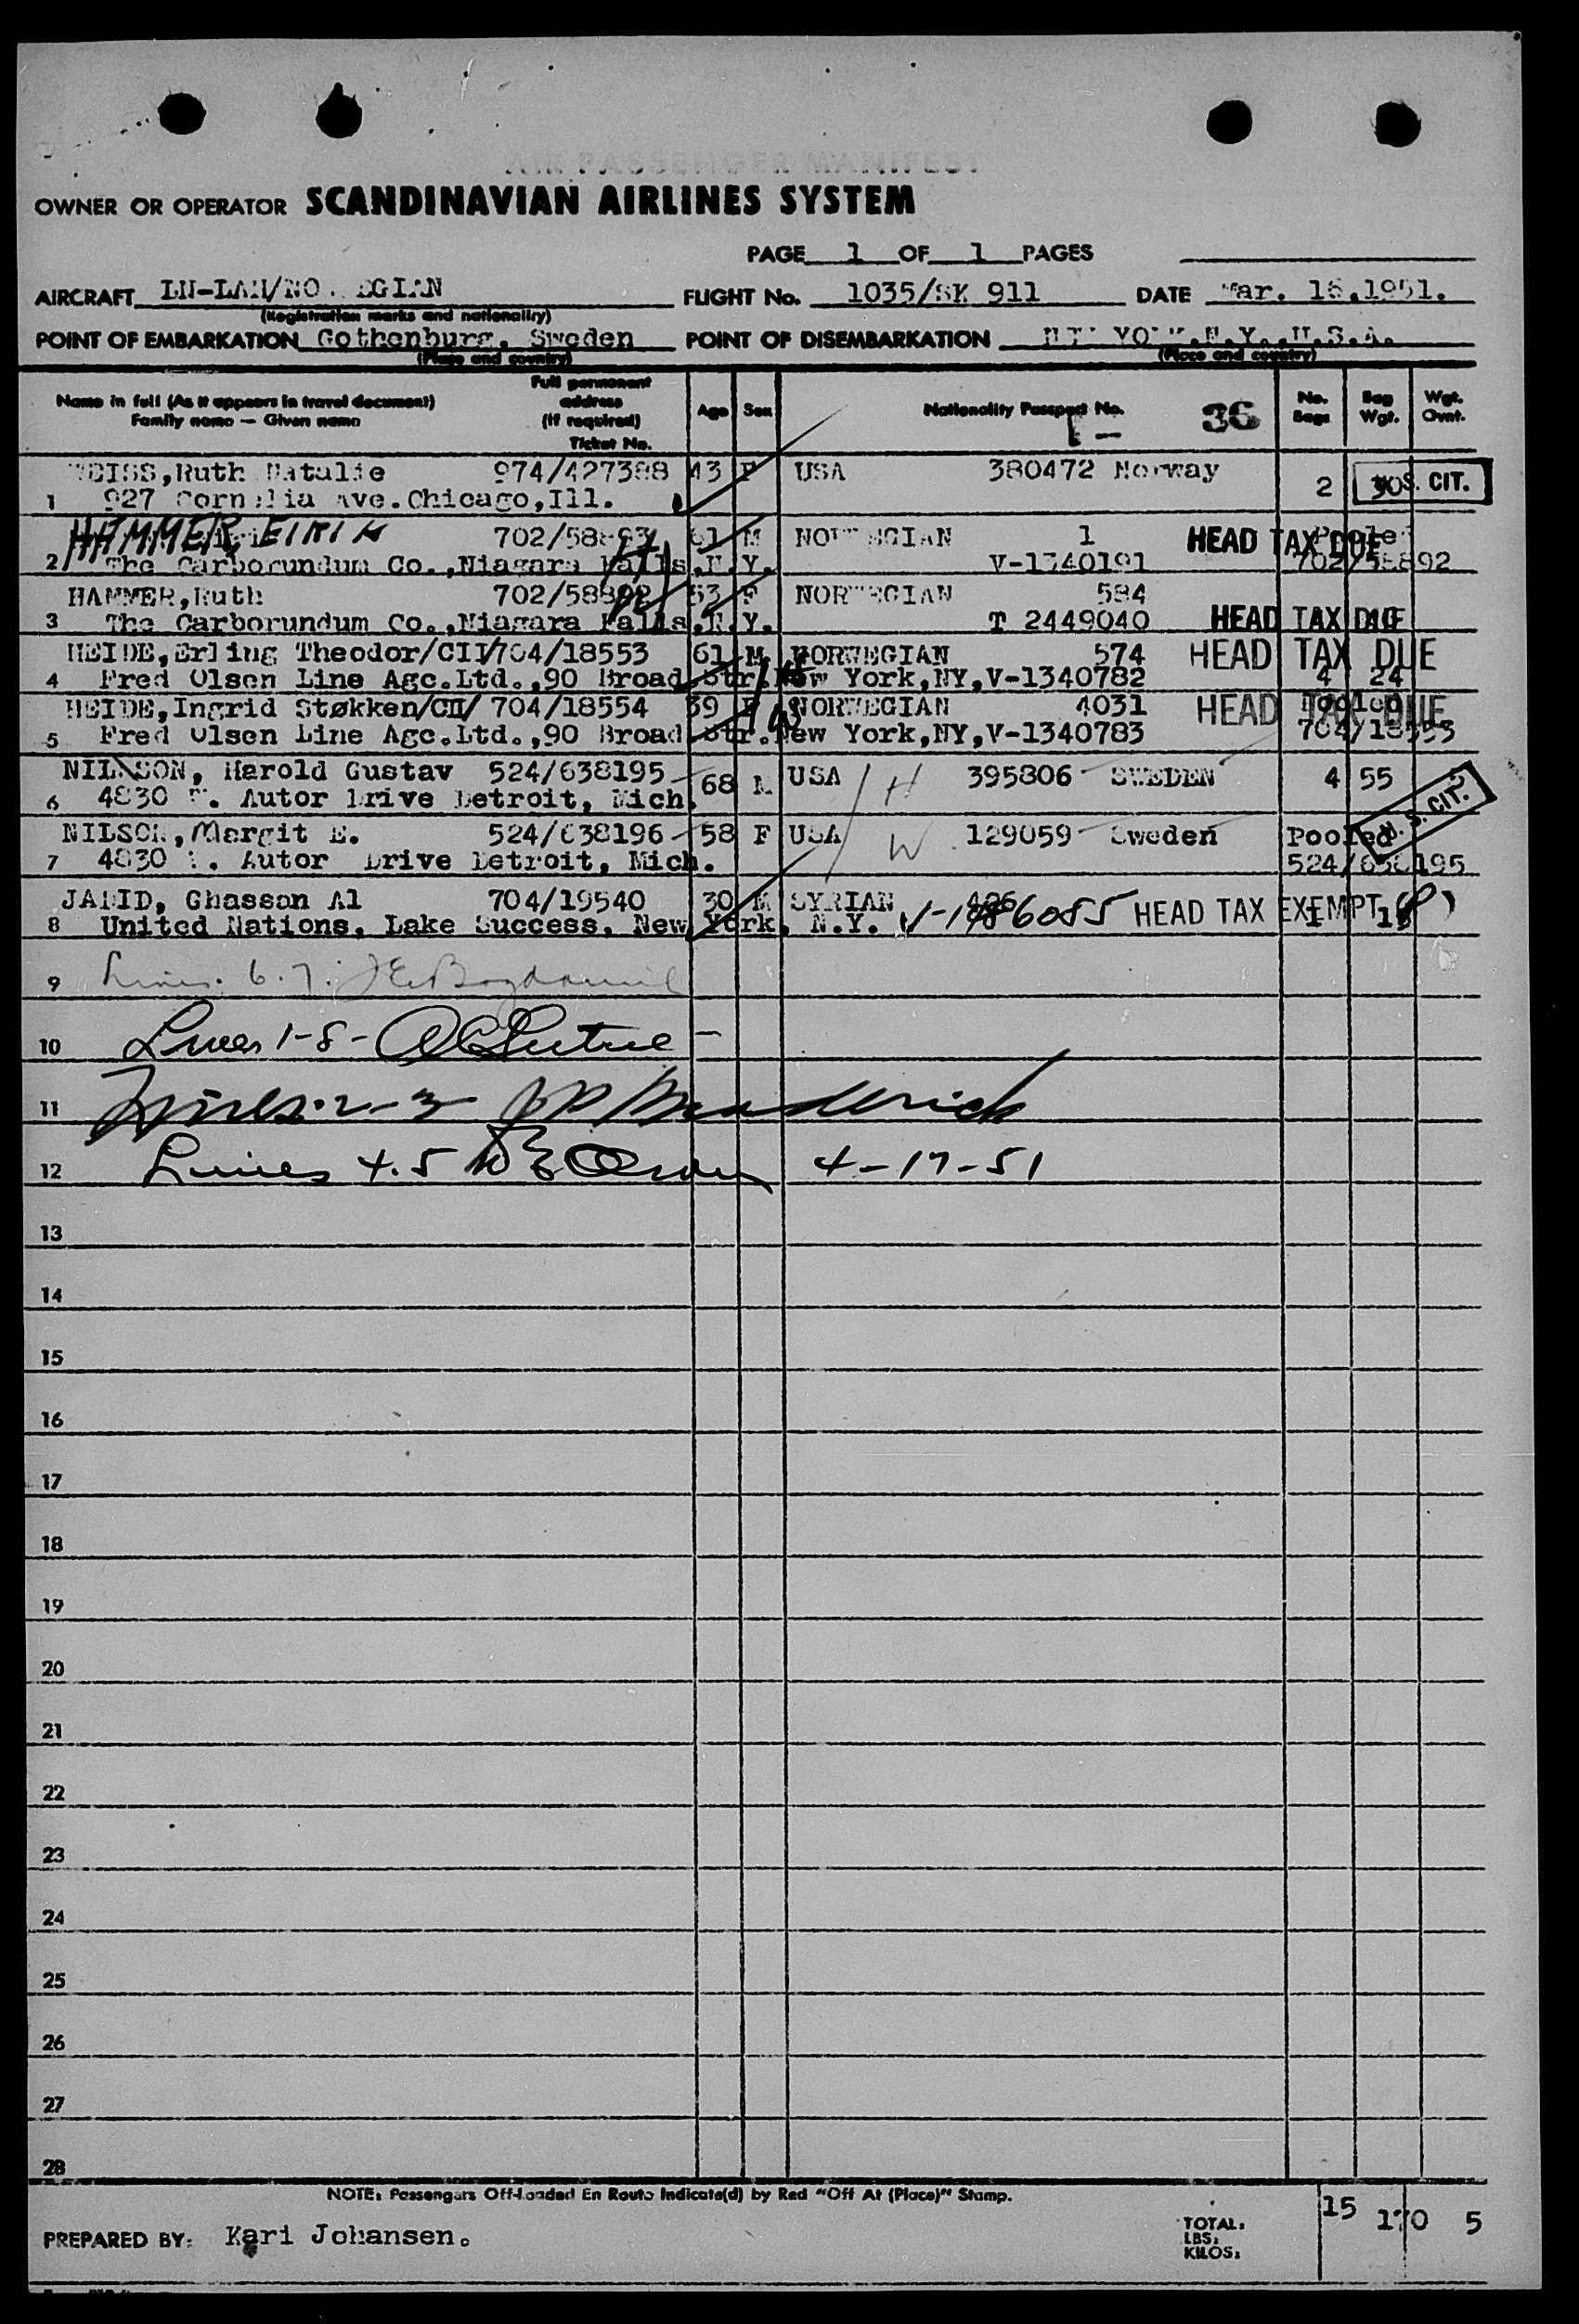 AIR PASSENGER MANIFEST
OWNER OR OPERATOR SCANDINAVIAN AIRLINES SYSTEM
PAGE 1 OF 1 PAGES
AIRCRAFT FLIGHT No. 1035/SK 911 DATE Mar. 16,1951.
(Registration marks and nationality)
POINT OF EMBARKATION Gothenburg, Sweden POINT OF DISEMBARKATION NEW YORK,N.Y.,U.S.A.
(Place and country) (Place and country)
Name in full (As it appears in travel document) Family name — Given name Full permanent address (If required) Ticket No. Age Sex Nationality Passport No. 36 No. Bags Bag Wgt. Wgt. Ovnt.
WEISS,Ruth Natalie 974/427388 43 F USA 380472 Norway
1 927 Cornelia Ave.Chicago,Ill. 2 30 U.S. CIT.
HAMMER, EIRIK 702/58893 61 M NORWEGIAN 1 HEAD TAX DUE Pooled
2 The Carborundum Co.,Niagara Falls,N.Y. V-1340191 702/58892
HAMMER,Ruth 702/58892 53 F NORWEGIAN 584
3 The Carborundum Co.,Niagara Falls,N.Y. T 2449040 HEAD TAX DUE
HEIDE,Erling Theodor/CII/704/18553 61 M NORWEGIAN 574 HEAD TAX DUE
4 Fred Olsen Line Agc.Ltd.,90 Broad Str.New York,NY,V-1340782 4 24
HEIDE,Ingrid Støkken/CII/ 704/18554 39 F NORWEGIAN 4031 HEAD TAX DUE Pooled
5 Fred Olsen Line Agc.Ltd.,90 Broad Str.New York,NY,V-1340783 704/18553
NILSSON, Harold Gustav 524/638195 68 M USA H 395806 SWEDEN 4 55
6 4830 W. Autor Drive Detroit, Mich. U.S. CIT.
NILSON, Margit E. 524/638196 58 F USA W 129059 Sweden Pooled
7 4830 W. Autor Drive Detroit, Mich. 524/638195
JADID, Ghassan Al 704/19540 30 M SYRIAN 406
8 United Nations, Lake Success, New York, N.Y. V-1486085 HEAD TAX EXEMPT
9 Lines 6.7.
10 Lines 1-8-
11 Lines 2-3
12 Lines 4.5 4-17-51
13
14
15
16
17
18
19
20
21
22
23
24
25
26
27
28
NOTE: Passengers Off-Loaded En Route Indicate(d) by Red "Off At (Place)" Stamp.
PREPARED BY: Kari Johansen. TOTAL: LBS: KILOS: 15 170 5